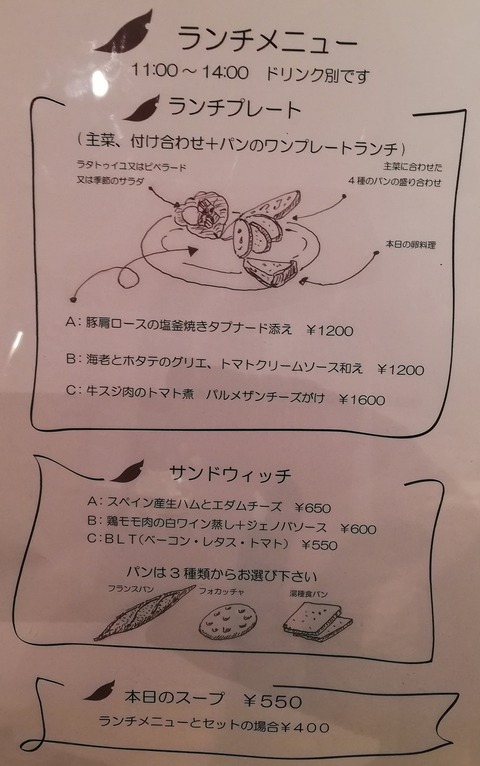 ランチメニュー
11:00～14:00 ドリンク別です
ランチプレート
(主菜、付け合わせ＋パンのワンプレートランチ)
ラタトゥイユ又はピペラード
又は季節のサラダ
主菜に合わせた
4種のパンの盛り合わせ
本日の卵料理
A：豚肩ロースの塩釜焼きタプナード添え ￥1200
B：海老とホタテのグリエ、トマトクリームソース和え ￥1200
C：牛スジ肉のトマト煮 パルメザンチーズがけ ￥1600
サンドウィッチ
A：スペイン産生ハムとエダムチーズ ￥650
B：鶏モモ肉の白ワイン蒸し＋ジェノバソース ￥600
C：BLT(ベーコン・レタス・トマト) ￥550
パンは3種類からお選び下さい
フランスパン
フォカッチャ
湯種食パン
本日のスープ ￥550
ランチメニューとセットの場合￥400